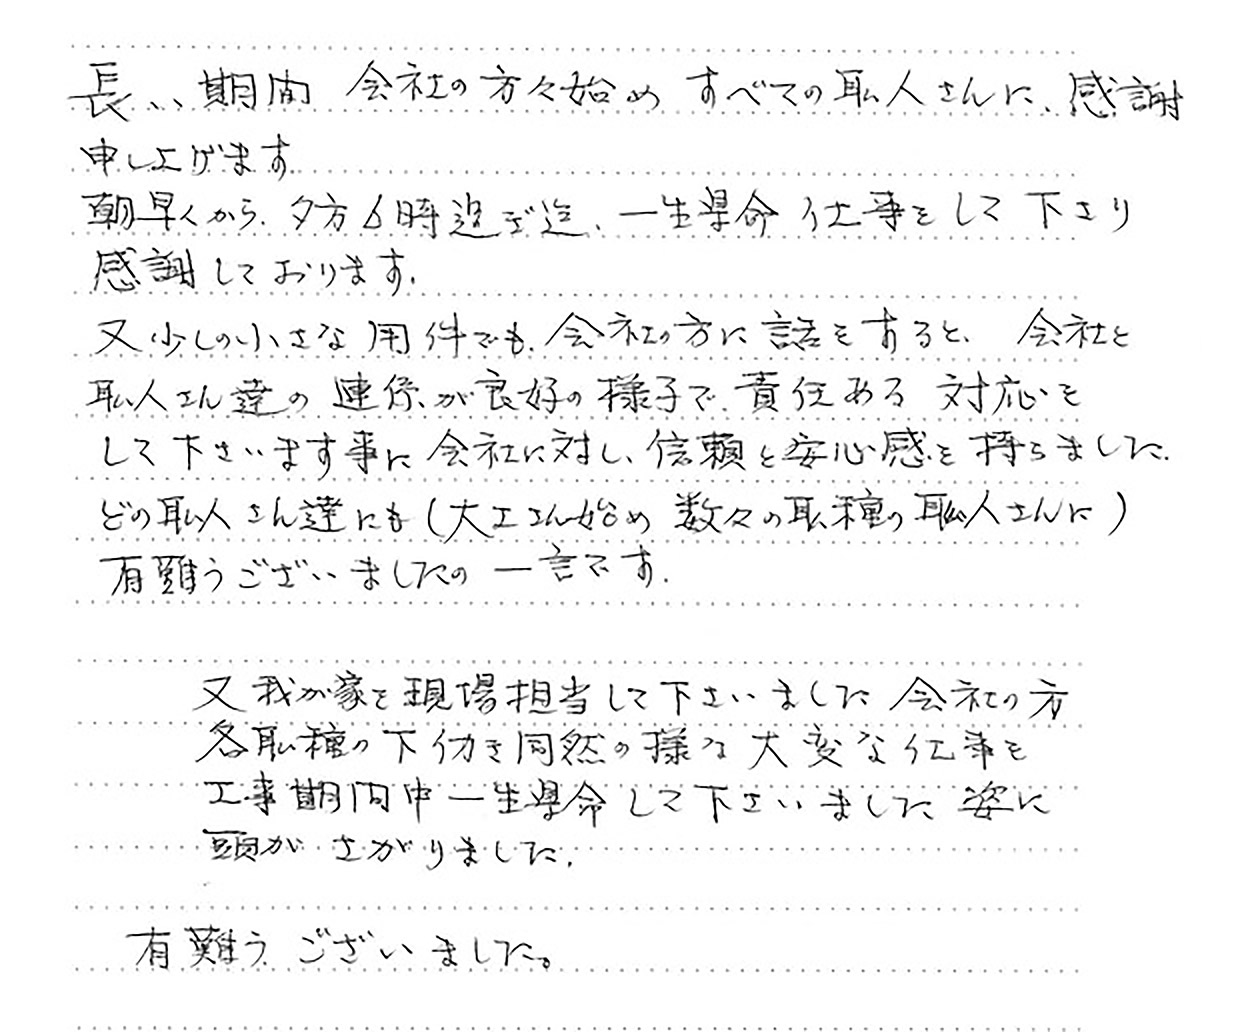 長い期間 会社の方々始め すべての耺人さんに、感謝
申し上げます
朝早くから、夕方6時迄、一生県命 仕事をして 下さり
感謝しております。
又少しの小さな 用件でも、会社の方に 話をすると、 会社と
耺人さん達の 連係が良好の様子で、責任ある 対応を
して下さいます事に 会社に対し、信頼と安心感を 持ちました。
どの耺人さん達にも(大工さん始め 数々の耺種の耺人さんに)
有難うございましたの 一言です。
又 我が家を 現場担当して下さいました 会社の方
各耺種の 下働き同然の様な 大変な仕事を
工事期間中 一生県命 して下さいました 姿に
頭が さがりました。
有難う ございました。